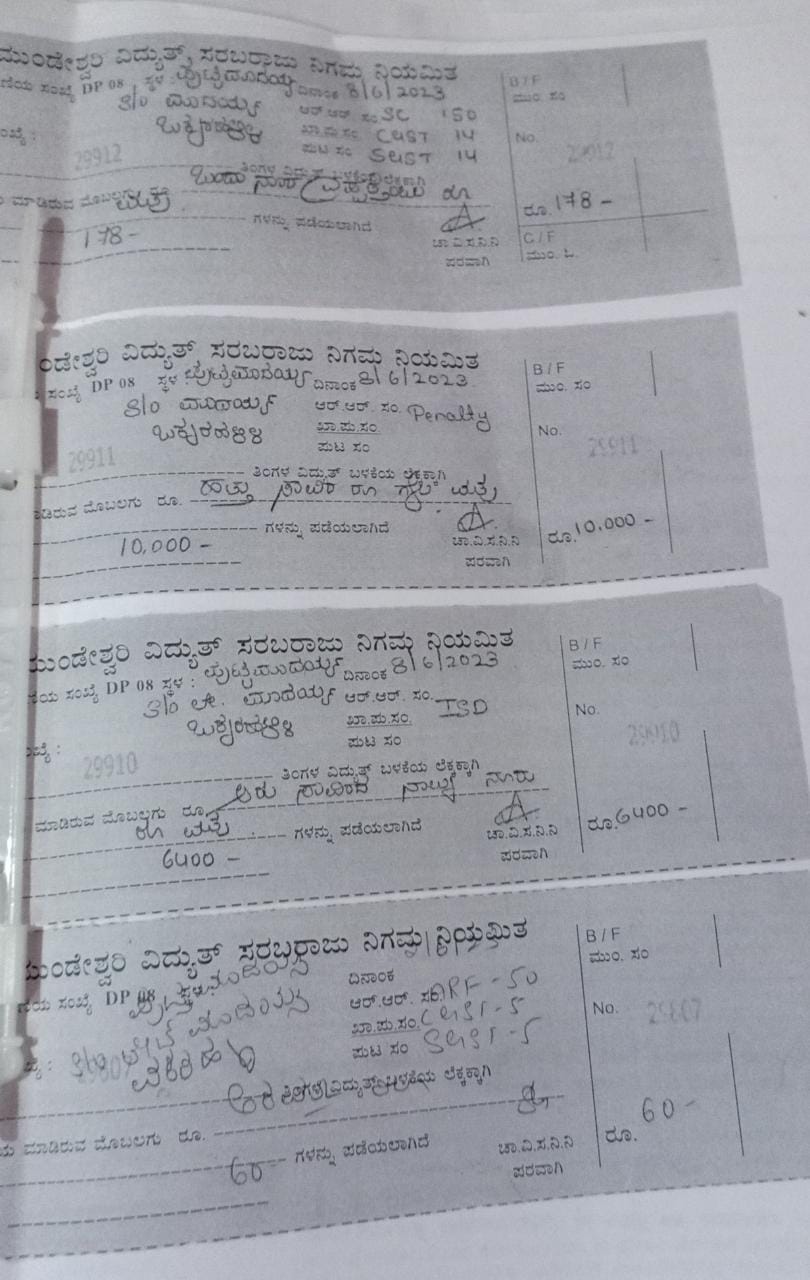 ಮುಂಡೇಶ್ವರಿ ವಿದ್ಯುತ್ ಸರಬರಾಜು ನಿಗಮ ನಿಯಮಿತ
ಣಿಯ ಸಂಖ್ಯೆ DP 08 ಸ್ಥಳ : ಪುಟ್ಟಮಾದಯ್ಯ ದಿನಾಂಕ 8/6/2023
S/o ಮಾದಯ್ಯ ಆರ್.ಆರ್ ಸಂ SC 150
ಖಾ.ಪು.ಸಂ CGST 14
29912 ಪುಟ ಸಂ SGST 14
ತಿಂಗಳ ವಿದ್ಯುತ್ ಬಳಕೆಯ ಲೆಕ್ಕಕ್ಕಾಗಿ
ಮಾಡಿರುವ ಮೊಬಲಗು
178 - ಗಳನ್ನು ಪಡೆಯಲಾಗಿದೆ
ಚಾ.ವಿ.ಸ.ನಿ.ನಿ
ಪರವಾಗಿ
B/F
ಮುಂ. ಸಂ
No. 29912
ರೂ. 178 -
C/F
ಮುಂ. ಓ.
ಂಡೇಶ್ವರಿ ವಿದ್ಯುತ್ ಸರಬರಾಜು ನಿಗಮ ನಿಯಮಿತ
ಸಂಖ್ಯೆ DP 08 ಸ್ಥಳ : ಪುಟ್ಟಮಾದಯ್ಯ ದಿನಾಂಕ 8/6/2023
S/o ಮಾದಯ್ಯ ಆರ್.ಆರ್. ಸಂ. Penalty
ಖಾ.ಪು.ಸಂ.
29911 ಪುಟ ಸಂ
ತಿಂಗಳ ವಿದ್ಯುತ್ ಬಳಕೆಯ ಲೆಕ್ಕಕ್ಕಾಗಿ
ಾಡಿರುವ ಮೊಬಲಗು ರೂ. ಹತ್ತು ಸಾವಿರ ರೂ ಗಳು ಮಾತ್ರ
10,000 - ಗಳನ್ನು ಪಡೆಯಲಾಗಿದೆ
ಚಾ.ವಿ.ಸ.ನಿ.ನಿ
ಪರವಾಗಿ
B / F
ಮುಂ. ಸಂ
No. 29911
ರೂ. 10,000 -
ಮುಂಡೇಶ್ವರಿ ವಿದ್ಯುತ್ ಸರಬರಾಜು ನಿಗಮ ನಿಯಮಿತ
ಣಿಯ ಸಂಖ್ಯೆ DP 08 ಸ್ಥಳ : ಪುಟ್ಟಮಾದಯ್ಯ ದಿನಾಂಕ 8/6/2023
S/o ಲೇ. ಮಾದಯ್ಯ ಆರ್.ಆರ್. ಸಂ. ISD
ಖಾ.ಪು.ಸಂ.
ಖ್ಯೆ : 29910 ಪುಟ ಸಂ
ತಿಂಗಳ ವಿದ್ಯುತ್ ಬಳಕೆಯ ಲೆಕ್ಕಕ್ಕಾಗಿ
ಮಾಡಿರುವ ಮೊಬಲಗು ರೂ. ಆರು ಸಾವಿರದ ನಾಲ್ಕು ನೂರು
ರೂ ಮಾತ್ರ ಗಳನ್ನು ಪಡೆಯಲಾಗಿದೆ
6400 -
ಚಾ.ವಿ.ಸ.ನಿ.ನಿ
ಪರವಾಗಿ
B / F
ಮುಂ. ಸಂ
No. 29910
ರೂ. 6400 -
ಮುಂಡೇಶ್ವರಿ ವಿದ್ಯುತ್ ಸರಬರಾಜು ನಿಗಮ ನಿಯಮಿತ
ಣಿಯ ಸಂಖ್ಯೆ DP 08 ಸ್ಥಳ : ದಿನಾಂಕ
S/o ಲೇಟ್ ಮಾದಯ್ಯ ಆರ್.ಆರ್. ಸಂ. ARF - 50
ಖಾ.ಪು.ಸಂ. CGST - 5
ಖ್ಯೆ : ಪುಟ ಸಂ SGST - 5
ತಿಂಗಳ ವಿದ್ಯುತ್ ಬಳಕೆಯ ಲೆಕ್ಕಕ್ಕಾಗಿ
ಮಾಡಿರುವ ಮೊಬಲಗು ರೂ.
60 ಗಳನ್ನು ಪಡೆಯಲಾಗಿದೆ
ಚಾ.ವಿ.ಸ.ನಿ.ನಿ
ಪರವಾಗಿ
B / F
ಮುಂ. ಸಂ
No.
ರೂ. 60 -